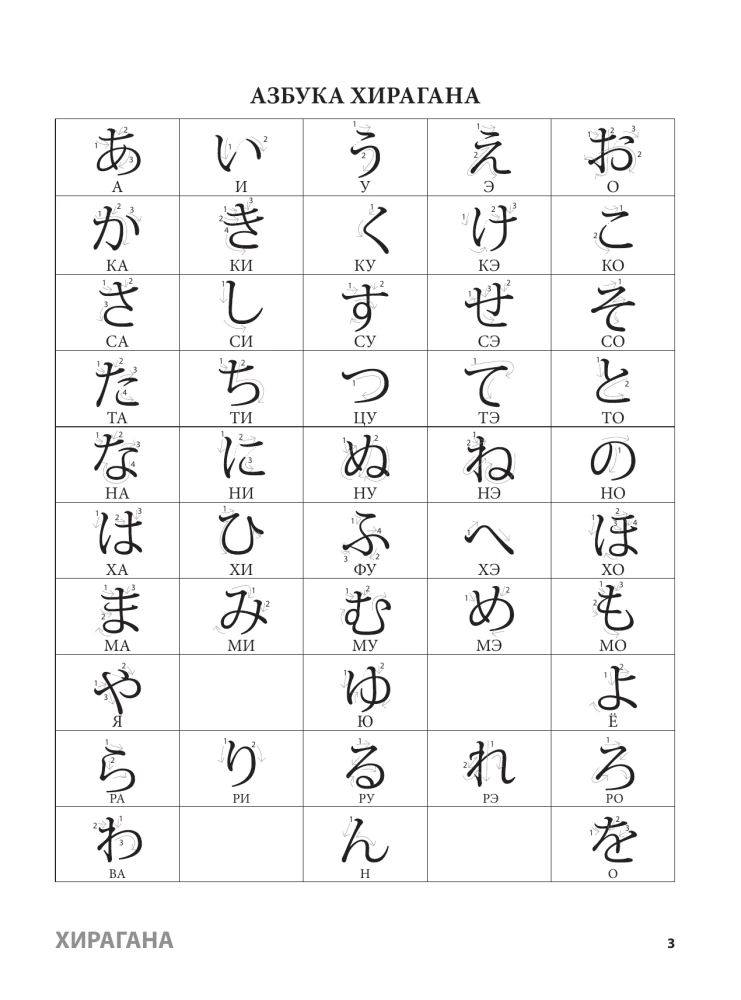 АЗБУКА ХИРАГАНА
あ い う え お
А И У Э О
か き く け こ
КА КИ КУ КЭ КО
さ し す せ そ
СА СИ СУ СЭ СО
た ち つ て と
ТА ТИ ЦУ ТЭ ТО
な に ぬ ね の
НА НИ НУ НЭ НО
は ひ ふ へ ほ
ХА ХИ ФУ ХЭ ХО
ま み む め も
МА МИ МУ МЭ МО
や ゆ よ
Я Ю Ё
ら り る れ ろ
РА РИ РУ РЭ РО
わ ん を
ВА Н О
ХИРАГАНА 3